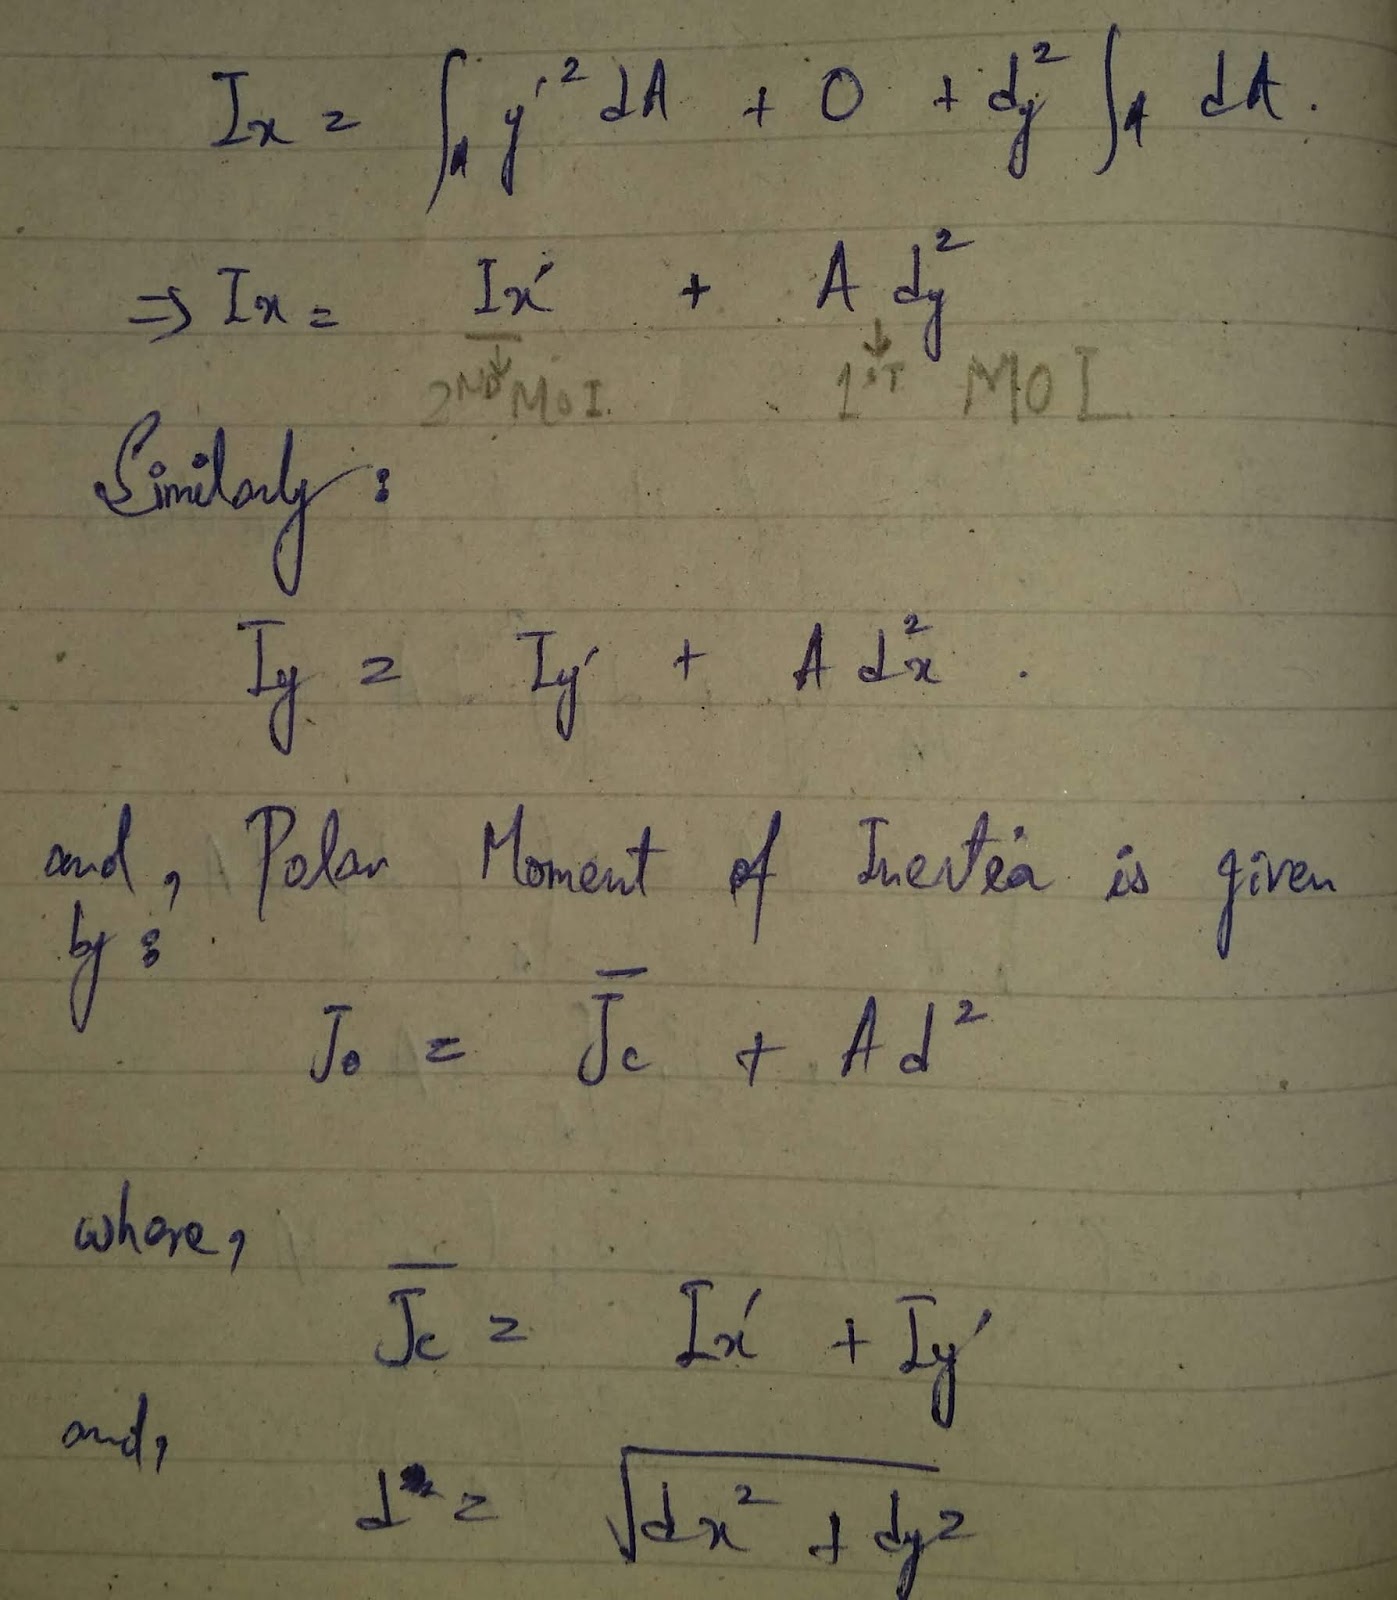 Ix = ∫A y'² dA + 0 + dy² ∫A dA.
⇒ Ix = Ix' + A dy²
2ND MOI. 1ST MOI
Similarly:
Iy = Iy' + A dx².
and, Polar Moment of Inertia is given
by:
Jo = J̅c + A d²
where,
J̅c = Ix' + Iy'
and,
d = √(dx² + dy²)